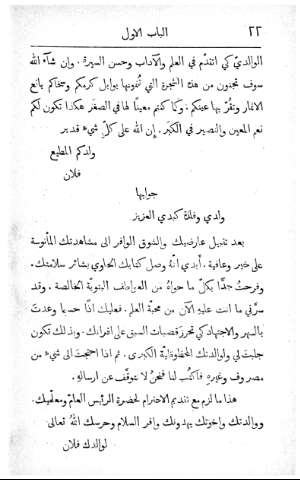 ٢٢ الباب الاول
الوالديّ كي اتقدَّم في العلم والآداب وحسن السيرة. وإن شآء الله
سوف تجدون من هذه الشجرة التي تُنمونها بوابل كرمكم وسخائكم يانع
الاثمار وتقرُّ بها عينكم. وكما كنتم معينًا لها في الصغر هكذا تكون لكم
نعم المعين والنصير في الكبَر. إن الله على كلّ شيءٍ قدير
ولدكم المطيع
فلان
جوابها
ولدي وفلذة كبدي العزيز
بعد تقبيل عارضيك والشوق الوافر الى مشاهدتك المأنوسة
على خير وعافية. أُبدي انهُ وصل كتابك الحاوي بشائر سلامتك.
وفرحتُ جدًّا بكلّ ما حواهُ من العواطف البنويَّة الخالصة. وقد
سرَّني ما انت عليهِ الآن من محبَّة العلم. فعليك اذًا حسبما وعدتَ
بالسهر والاجتهاد كي تحرز قصبات السبق على اقرانك. وبذلك تكون
جلبتَ لي ولوالدتك المحظوظيَّة الكبرى. ثم اذا احتجتَ الى شيءٍ من
مصروف وغيرهِ فاكتُب لنا فنحنُ لا نتوقَّف عن ارسالهِ.
هذا ما لزم مع تقديم الاحترام لحضرة الرئيس العامّ ومعلّميك.
ووالدتك واخوتك يهدونك وافر السلام وحرسك اللهُ تعالى
لوالدك فلان